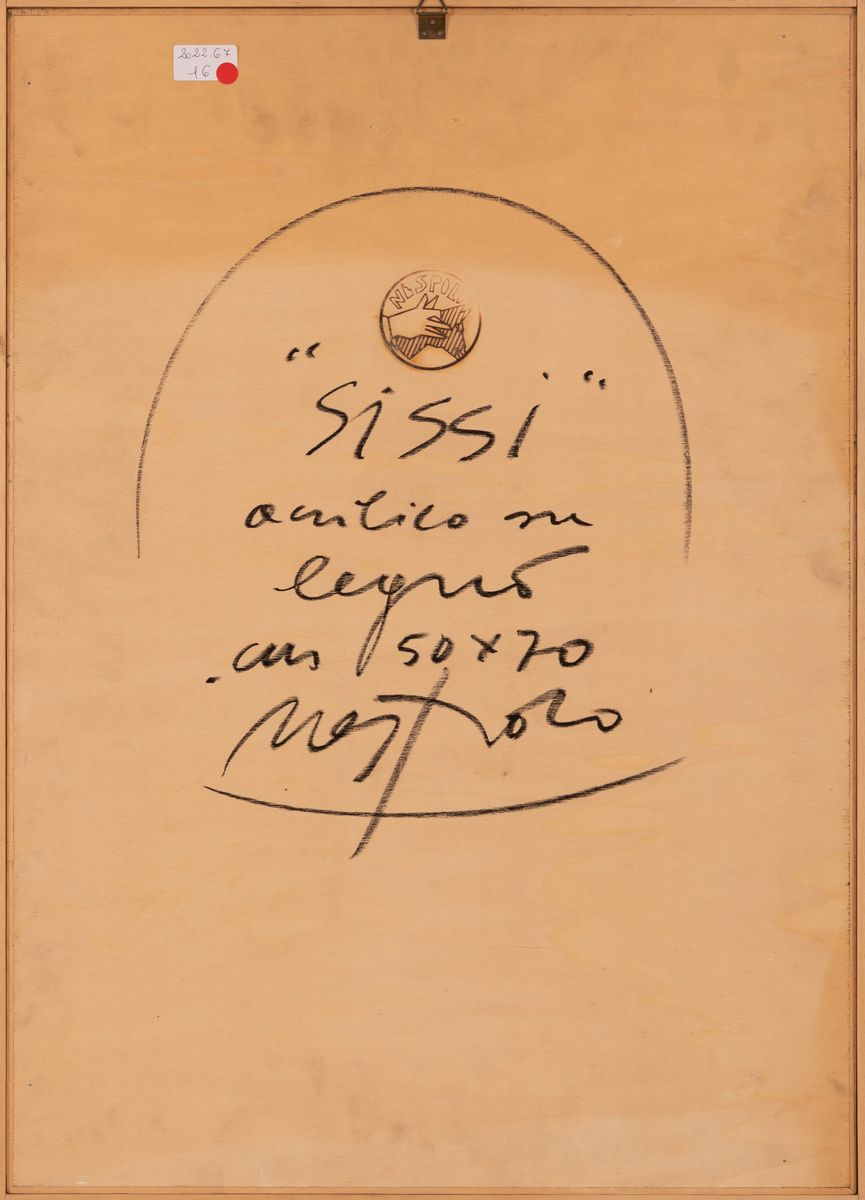 2022.67
16
NESPOLO
"Sissi"
acrilico su
legno
cm 50x70
Nespolo